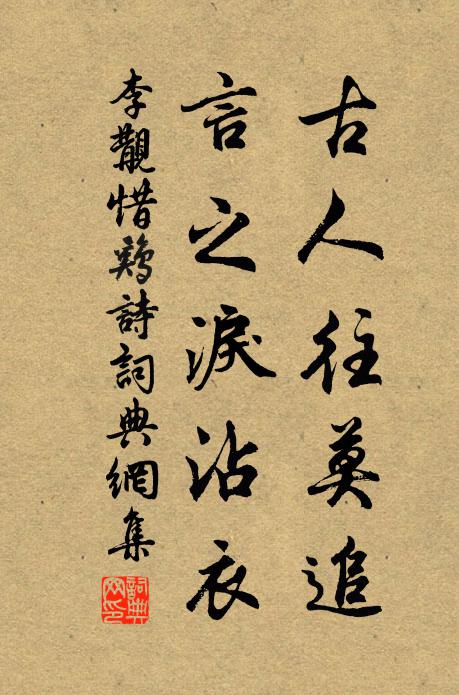 古人往莫追
言之淚沾衣
李覯惜鷄詩詞典網集
詞典網印